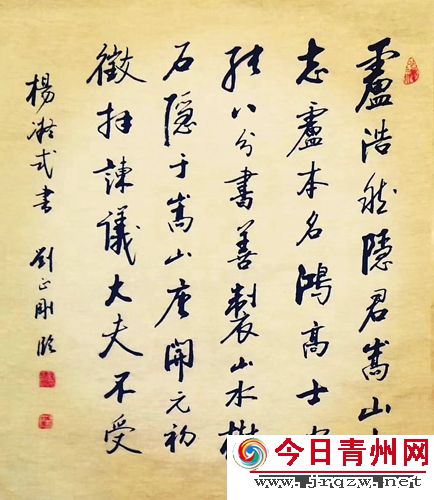 盧浩然隱君嵩山
志盧本名鴻高士也
能八分書善製山水樹
石隱于嵩山唐開元初
徵拜諫議大夫不受
楊凝式書 劉正剛臨
今日青州网
www.jrqzw.net